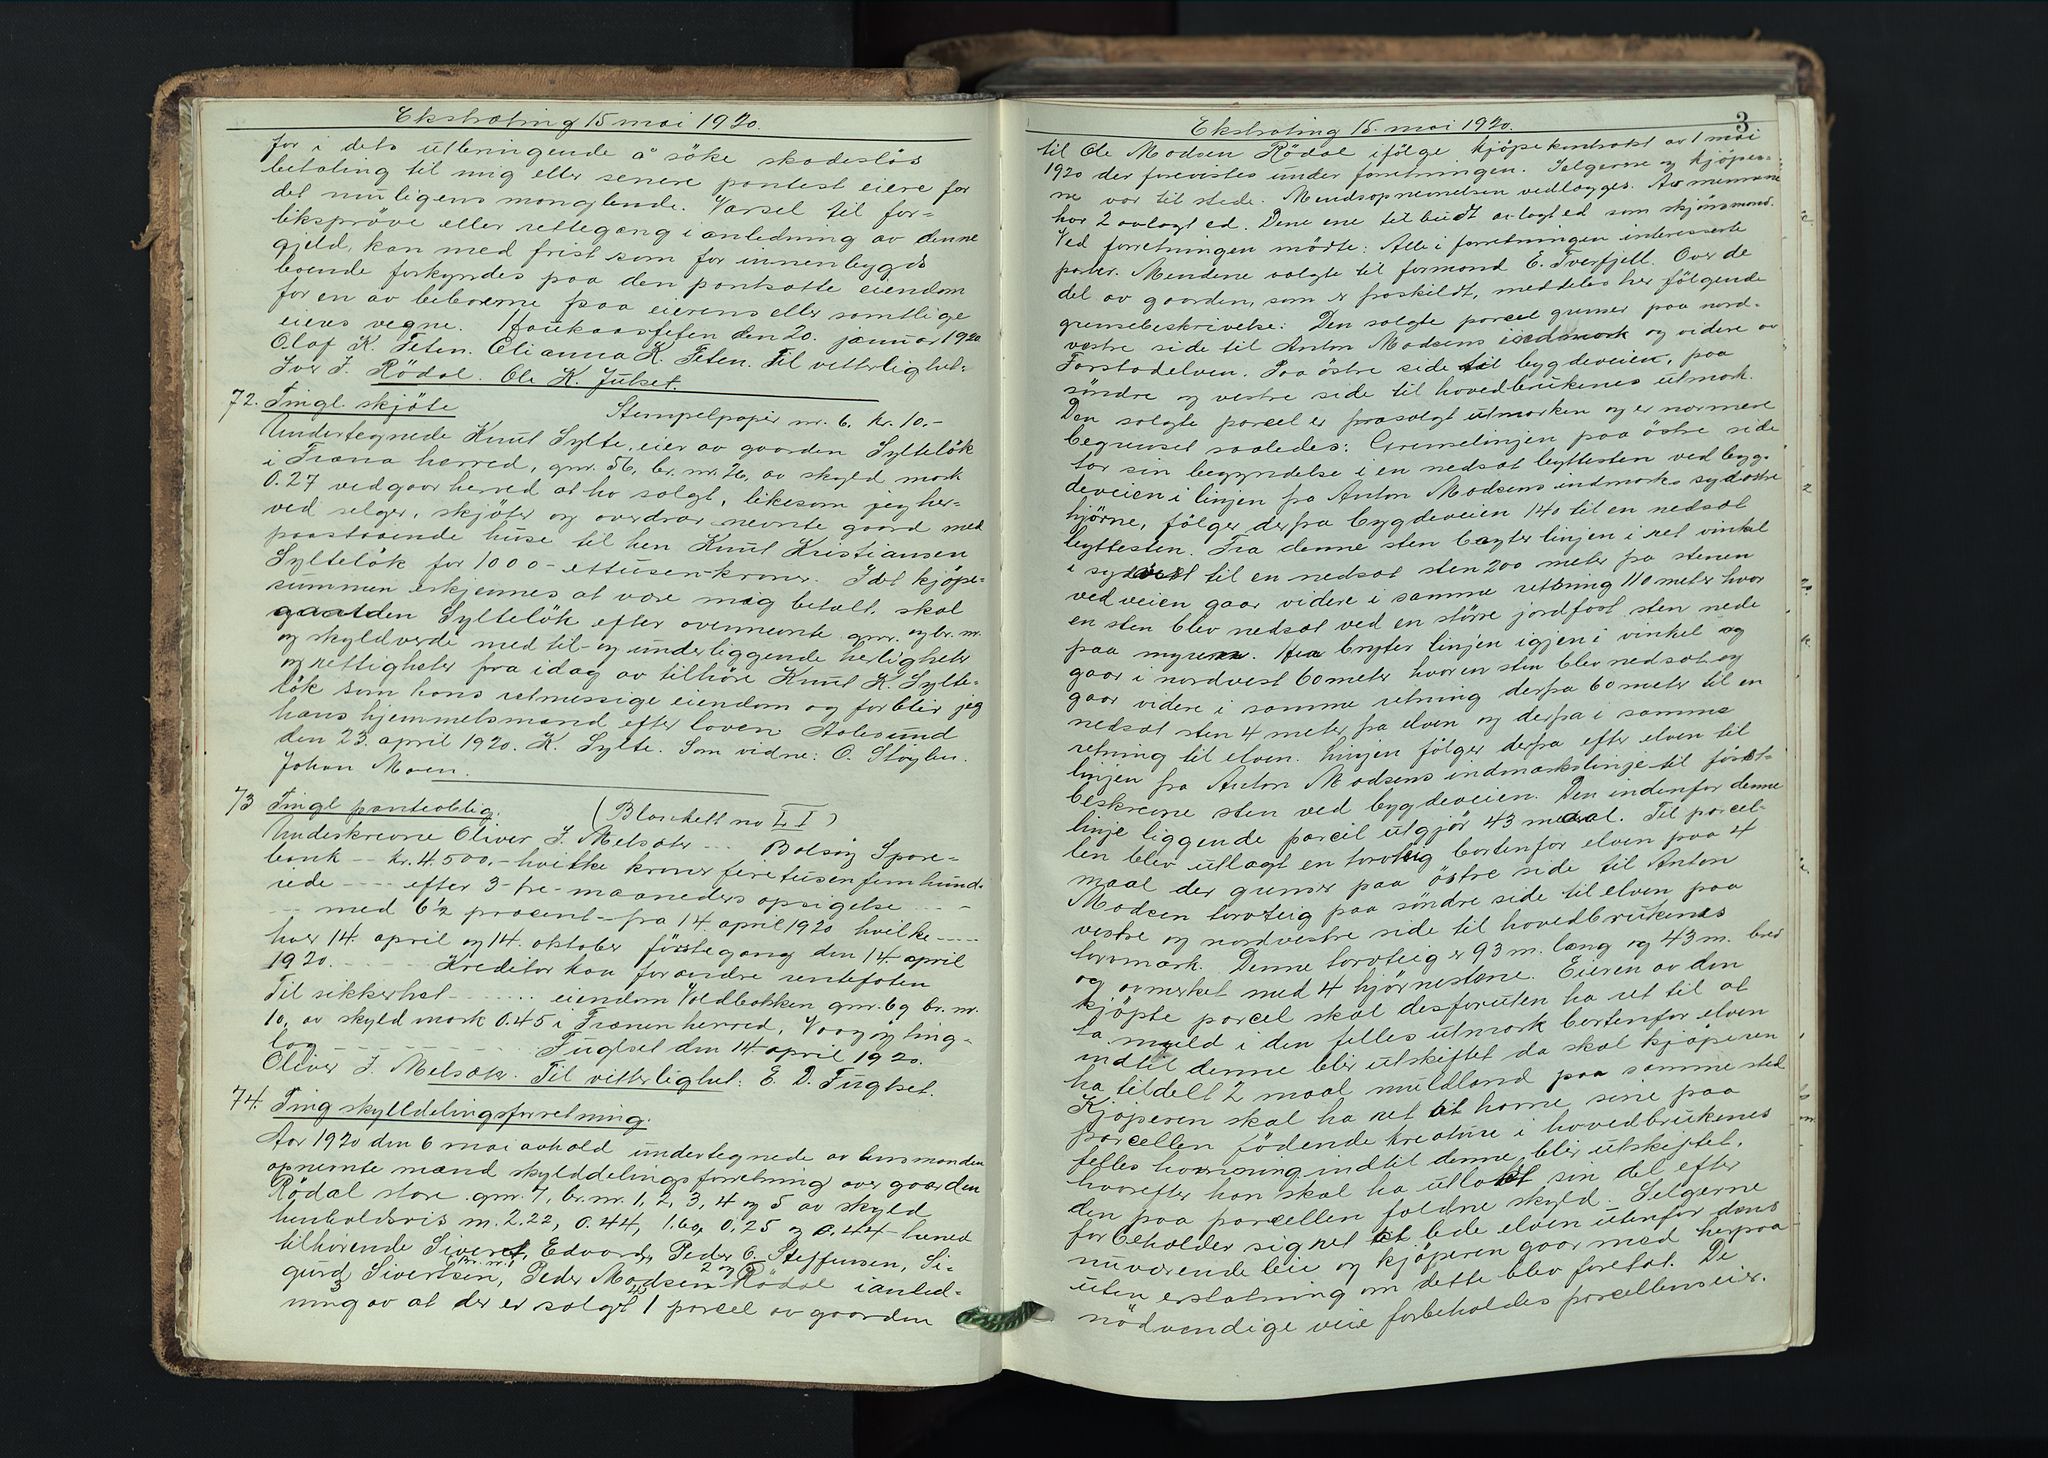 Ekstrating 15 mai 1920.
for i dets utbringende å söke skadeslös
betaling til mig eller senere pantest eiere for
det muligens manglende. Varsel til for-
liksprøve eller rettegang i anledning av denne
gjeld, kan med frist som for innenbygds
boende forkyndes paa den pantsatte eiendom
for en av beboerne paa eierens eller samtlige
eieres vegne. Haukaasfeten den 20. januar 1920
Olaf K. Feten. Elianna K. Feten. Til vitterlighet:
Iver J. Rödal. Ole K. Julset.
72. Tingl. skjöte Stempelpapir nr. 6. kr. 10.-
Undertegnede Knut Sylte, eier av gaarden Syltelök
i Fræna herred, gnr. 56, br. nr. 26, av skyld mark
0.27 vedgaar herved at ha solgt, likesom jeg her-
ved selger, skjöter og overdrar nevnte gaard med
paastaaende huse til hen Knut Kristiansen
Syltelök for 1000 - ettusen-kroner. Idet kjöpe-
summen erkjennes at være mig betalt, skal
gaarden Syltelök efter ovennevnte gnr. og br. nr.
og skyldverdi med til- og underliggende herligheter
og rettigheter fra idag av tilhöre Knut K. Sylte-
lök som hans retmessige eiendom og forblir jeg
hans hjemmelsmand efter loven Aalesund
den 23. april 1920. K. Sylte. Som vidne: O. Stöylen.
Johan Moen.
73 Tingl. panteoblig. (Blankett no LI)
Underskrevne Oliver J. Melsæter ... Bolsöy Spare-
bank -- kr. 4.500,- hvilke kroner firetusen fem hund-
rede ---- efter 3-tre-maaneders opsigelse ....
... med 6½ procent - fra 14 april 1920 hvilke ----
hver 14. april og 14. oktober förste gang den 14 april
1920. ---- Kreditor kan forandre rentefoten
Til sikkerhet ------- eiendom Voldbakken gnr. 69 br. nr.
10, av skyld mark 0.45 i Frænen herred, Vaagöy ting-
lag ---------- Fuglset den 14. april 1920.
Oliver J. Melsæter. Til vitterlighet: E. D. Fuglset.
74. Ting skylddelingsforretning.
Aar 1920 den 6 mai avhold undertegnede av lensmanden
opnevnte mænd skylddelingsforretning over gaarden
Rödal store gnr. 7, br. nr. 1, 2, 3, 4 og 5 av skyld
henholdsvis m. 2.22, 0.44, 1.60, 0.25 og 0.44 - herred
tilhørende Sivert, Edvard, Peder O. Steffensen, Si-
gurd Sivertsen, Peder Madsen Rödal i anled-
ning av at der er solgt 1 parcel av gaarden
Ekstrating 15. mai 1920. 3
til Ole Madsen Rödal ifölge kjöpekontrakt av 1 mai
1920 der forevistes under forretningen. Selgerne og kjöper-
ne var til stede. Mendsopnevnelsen vedlægges. Av mennene
har 2 avlagt ed. Dene ene tilbudt avlagt ed som skjönsmand.
Ved forretningen mödte: Alle i forretningen interesserte
parter. Mendene valgte til formand E. Tverfjell. Over de
del av gaarden, som er fraskildt, meddeles her fölgende
grensebeskrivelse: Den solgte parcel grenser paa nord-
vestre side til Anton Madsens indmark og videre av
Farstadelven. Paa östre side til bygdeveien, paa
söndre og vestre side til hovedbrukenes utmark.
Den solgte parcel er frasolgt utmarken og er nærmere
begrenset saaledes: Grenselinjen paa östre side
tar sin begyndelse i en nedsat byttesten ved byg-
deveien i linjen fra Anton Madsens indmarks sydöstre
hjörne, fölger derfra bygdeveien 140 til en nedsat
byttesten. Fra denne sten bryter linjen i ret vinkel
i sydvest til en nedsat sten 200 meter fra stenen
ved veien gaar videre i samme retning 110 meter hvor
en sten blev nedsat ved en større jordfast sten nede
paa myren. Her bryter linjen igjen i vinkel og
gaar i nordvest 60 meter hvor en sten blev nedsat og
gaar videre i samme retning derfra 60 meter til en
nedsat sten 4 meter fra elven og derfra i samme
retning til elven. Linjen fölger derfra efter elven til
linjen fra Anton Madsens indmarkslinje til först-
beskrevne sten ved bygdeveien. Den indenfor denne
linje liggende parcel utgjör 43 maal. Til parcel-
len blev utlagt en torvteig bortenfor elven paa 4
maal der grenser paa östre side til Anton
Madsen torvteig paa söndre side til elven paa
vestre og nordvestre side til hovedbrukenes
torvmark. Denne torvteig er 93 m. lang og 43 m. bred
og avmerket med 4 hjörnestene. Eieren av den
kjöpte parcel skal desforuten ha ret til at
ta muld i den felles utmark bortenfor elven
indtil denne blir utskiftet da skal kjöperen
ha tildelt 2 maal muldland paa samme sted
Kjöperen skal ha ret til havne sine paa
parcellen födende kreature i hovedbrukenes
felles havning indtil denne blir utskiftet,
hvorefter han skal ha utlagt sin del efter
den paa parcellen faldne skyld. Selgerne
forbeholder sig ret at lede elven utenfor dens
nuværende leie og kjöperen gaar med herpaa
uten erstatning om dette blev foretat. De
nödvendige veie forbeholdes parcellens eier.